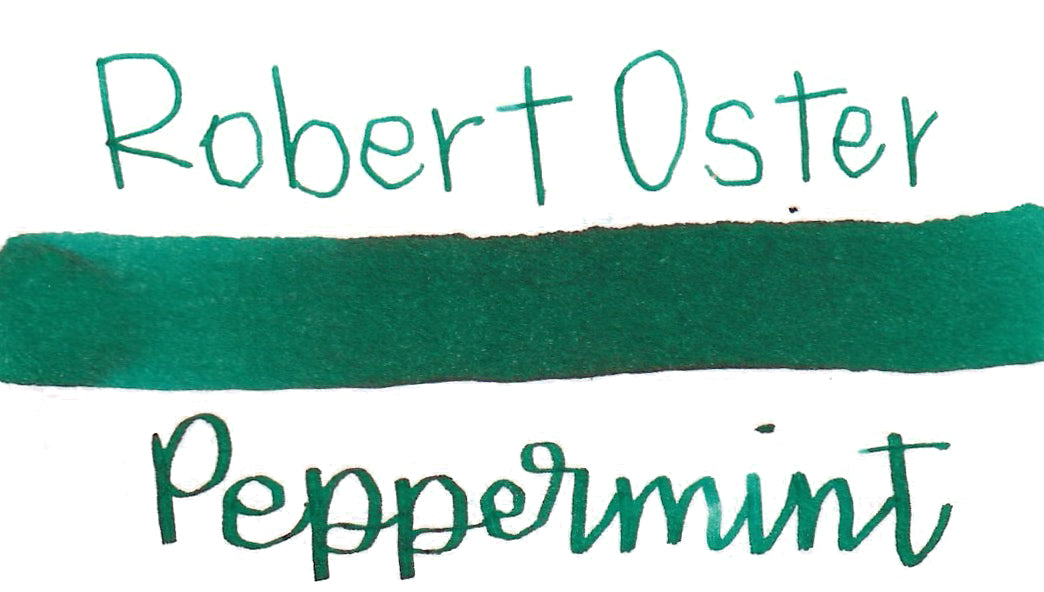 Robert Oster
Peppermint